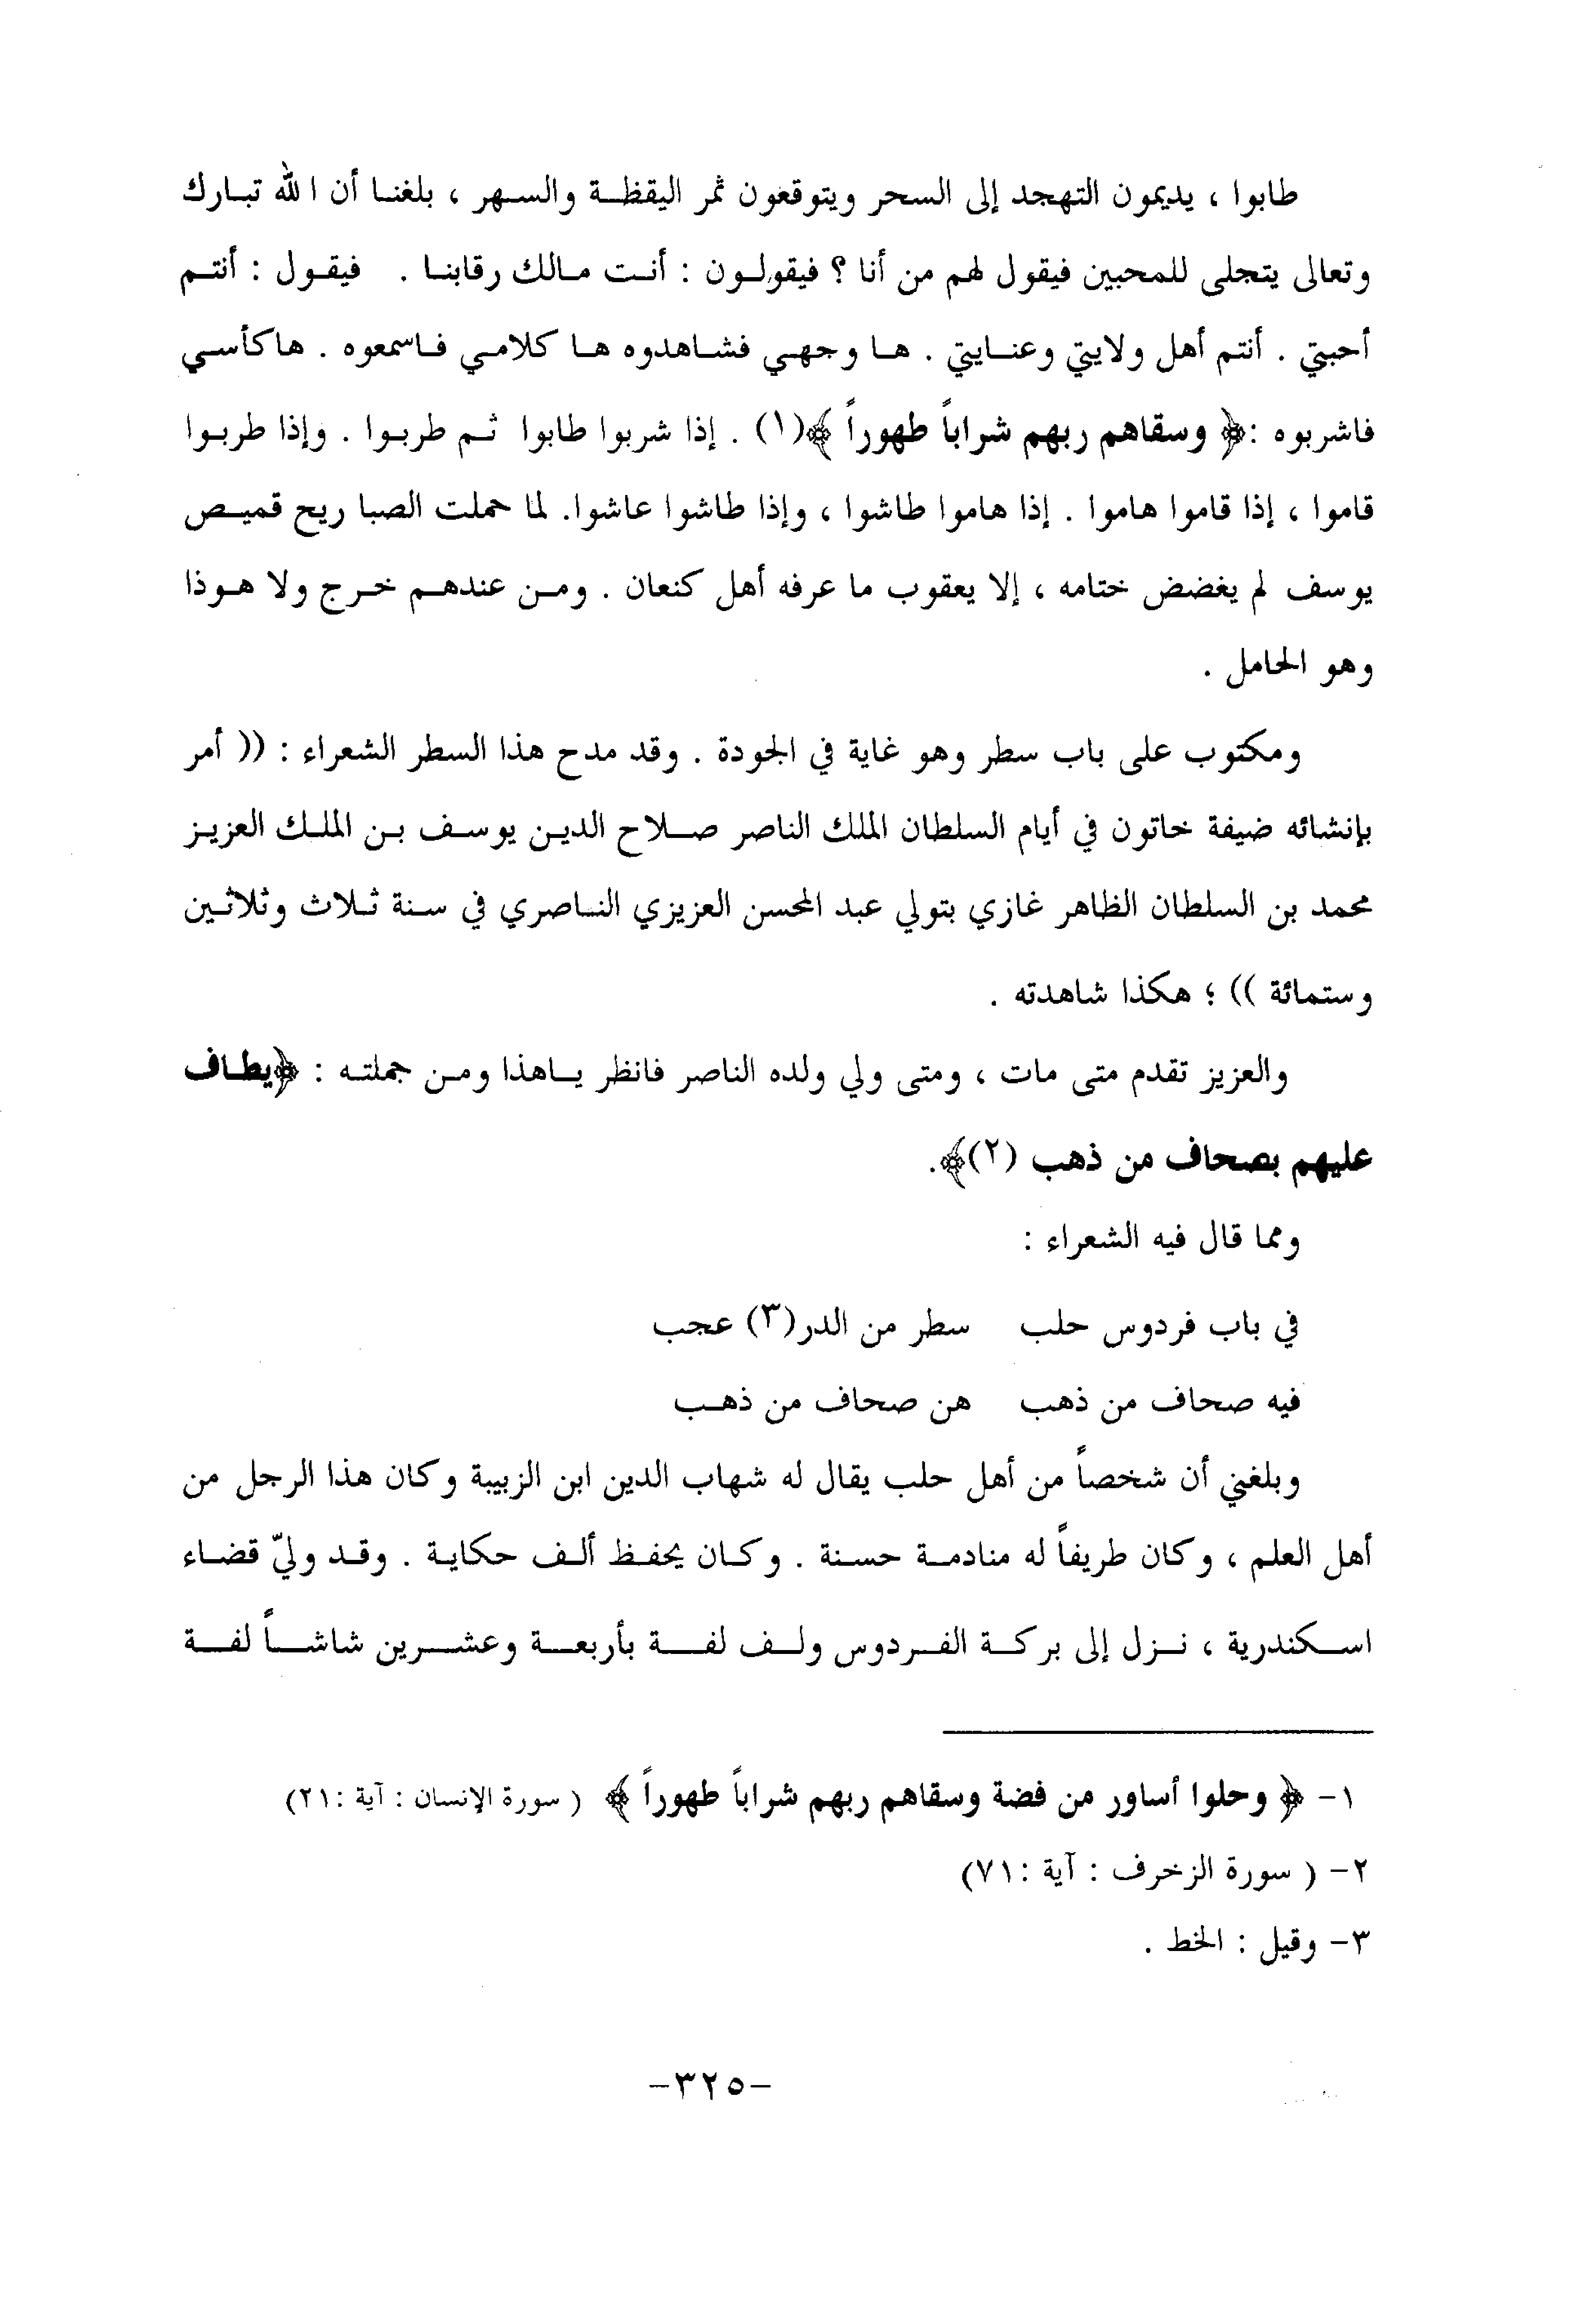 طابوا ، يديمون التهجد إلى السحر ويتوقعون ثمر اليقظة والسهر ، بلغنا أن الله تبارك
وتعالى يتجلى للمحبين فيقول لهم من أنا ؟ فيقولون : أنت مالك رقابنا . فيقول : أنتم
أحبتي . أنتم أهل ولايتي وعنايتي . ها وجهي فشاهدوه ها كلامي فاسمعوه . هاكأسي
فاشربوه :﴿ وسقاهم ربهم شراباً طهوراً ﴾(١) . إذا شربوا طابوا ثم طربوا . وإذا طربوا
قاموا ، إذا قاموا هاموا . إذا هاموا طاشوا ، وإذا طاشوا عاشوا. لما حملت الصبا ريح قميص
يوسف لم يغضض ختامه ، إلا يعقوب ما عرفه أهل كنعان . ومن عندهم خرج ولا هوذا
وهو الحامل .
ومكتوب على باب سطر وهو غاية في الجودة . وقد مدح هذا السطر الشعراء : (( أمر
بإنشائه ضيفة خاتون في أيام السلطان الملك الناصر صلاح الدين يوسف بن الملك العزيز
محمد بن السلطان الظاهر غازي بتولي عبد المحسن العزيزي الناصري في سنة ثلاث وثلاثين
وستمائة )) ؛ هكذا شاهدته .
والعزيز تقدم متى مات ، ومتى ولي ولده الناصر فانظر ياهذا ومن جملته : ﴿يطاف
عليهم بصحاف من ذهب (٢)﴾.
ومما قال فيه الشعراء :
في باب فردوس حلب سطر من الدر(٣) عجب
فيه صحاف من ذهب هن صحاف من ذهب
وبلغني أن شخصاً من أهل حلب يقال له شهاب الدين ابن الزبيبة وكان هذا الرجل من
أهل العلم ، وكان طريفاً له منادمة حسنة . وكان يحفظ ألف حكاية . وقد وليّ قضاء
اسكندرية ، نزل إلى بركة الفردوس ولف لفة بأربعة وعشرين شاشاً لفة
١- ﴿ وحلوا أساور من فضة وسقاهم ربهم شراباً طهوراً ﴾ ( سورة الإنسان : آية :٢١)
٢- ( سورة الزخرف : آية :٧١)
٣- وقيل : الخط .
-٣٢٥-